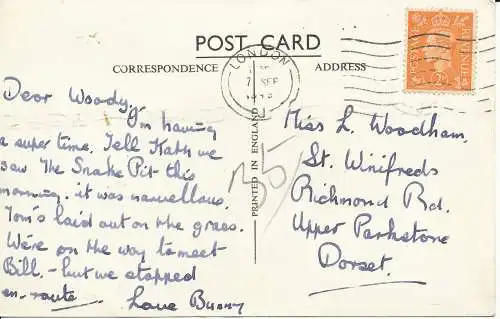 POST CARD
CORRESPONDENCE
ADDRESS
LONDON
7 SEP
POSTAGE
REVENUE
Dear Woody,
I'm having
a super time. Tell Kath we
saw The Snake Pit this
morning. it was marvellous.
Tom's laid out on the grass.
We're on the way to meet
Bill. - but we stopped
en-route
Love Bunny
PRINTED IN ENGLAND
Miss L. Woodham.
St. Winifreds
Richmond Rd.
Upper Parkstone
Dorset.